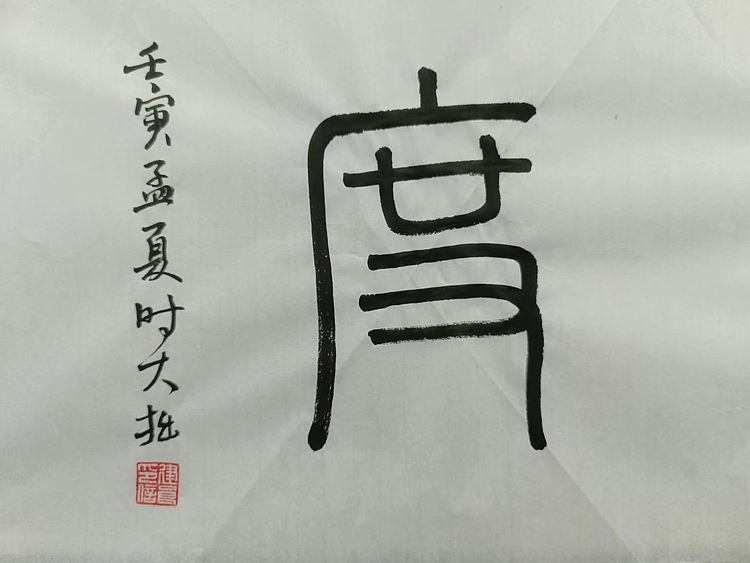 度
壬寅孟夏时大拙